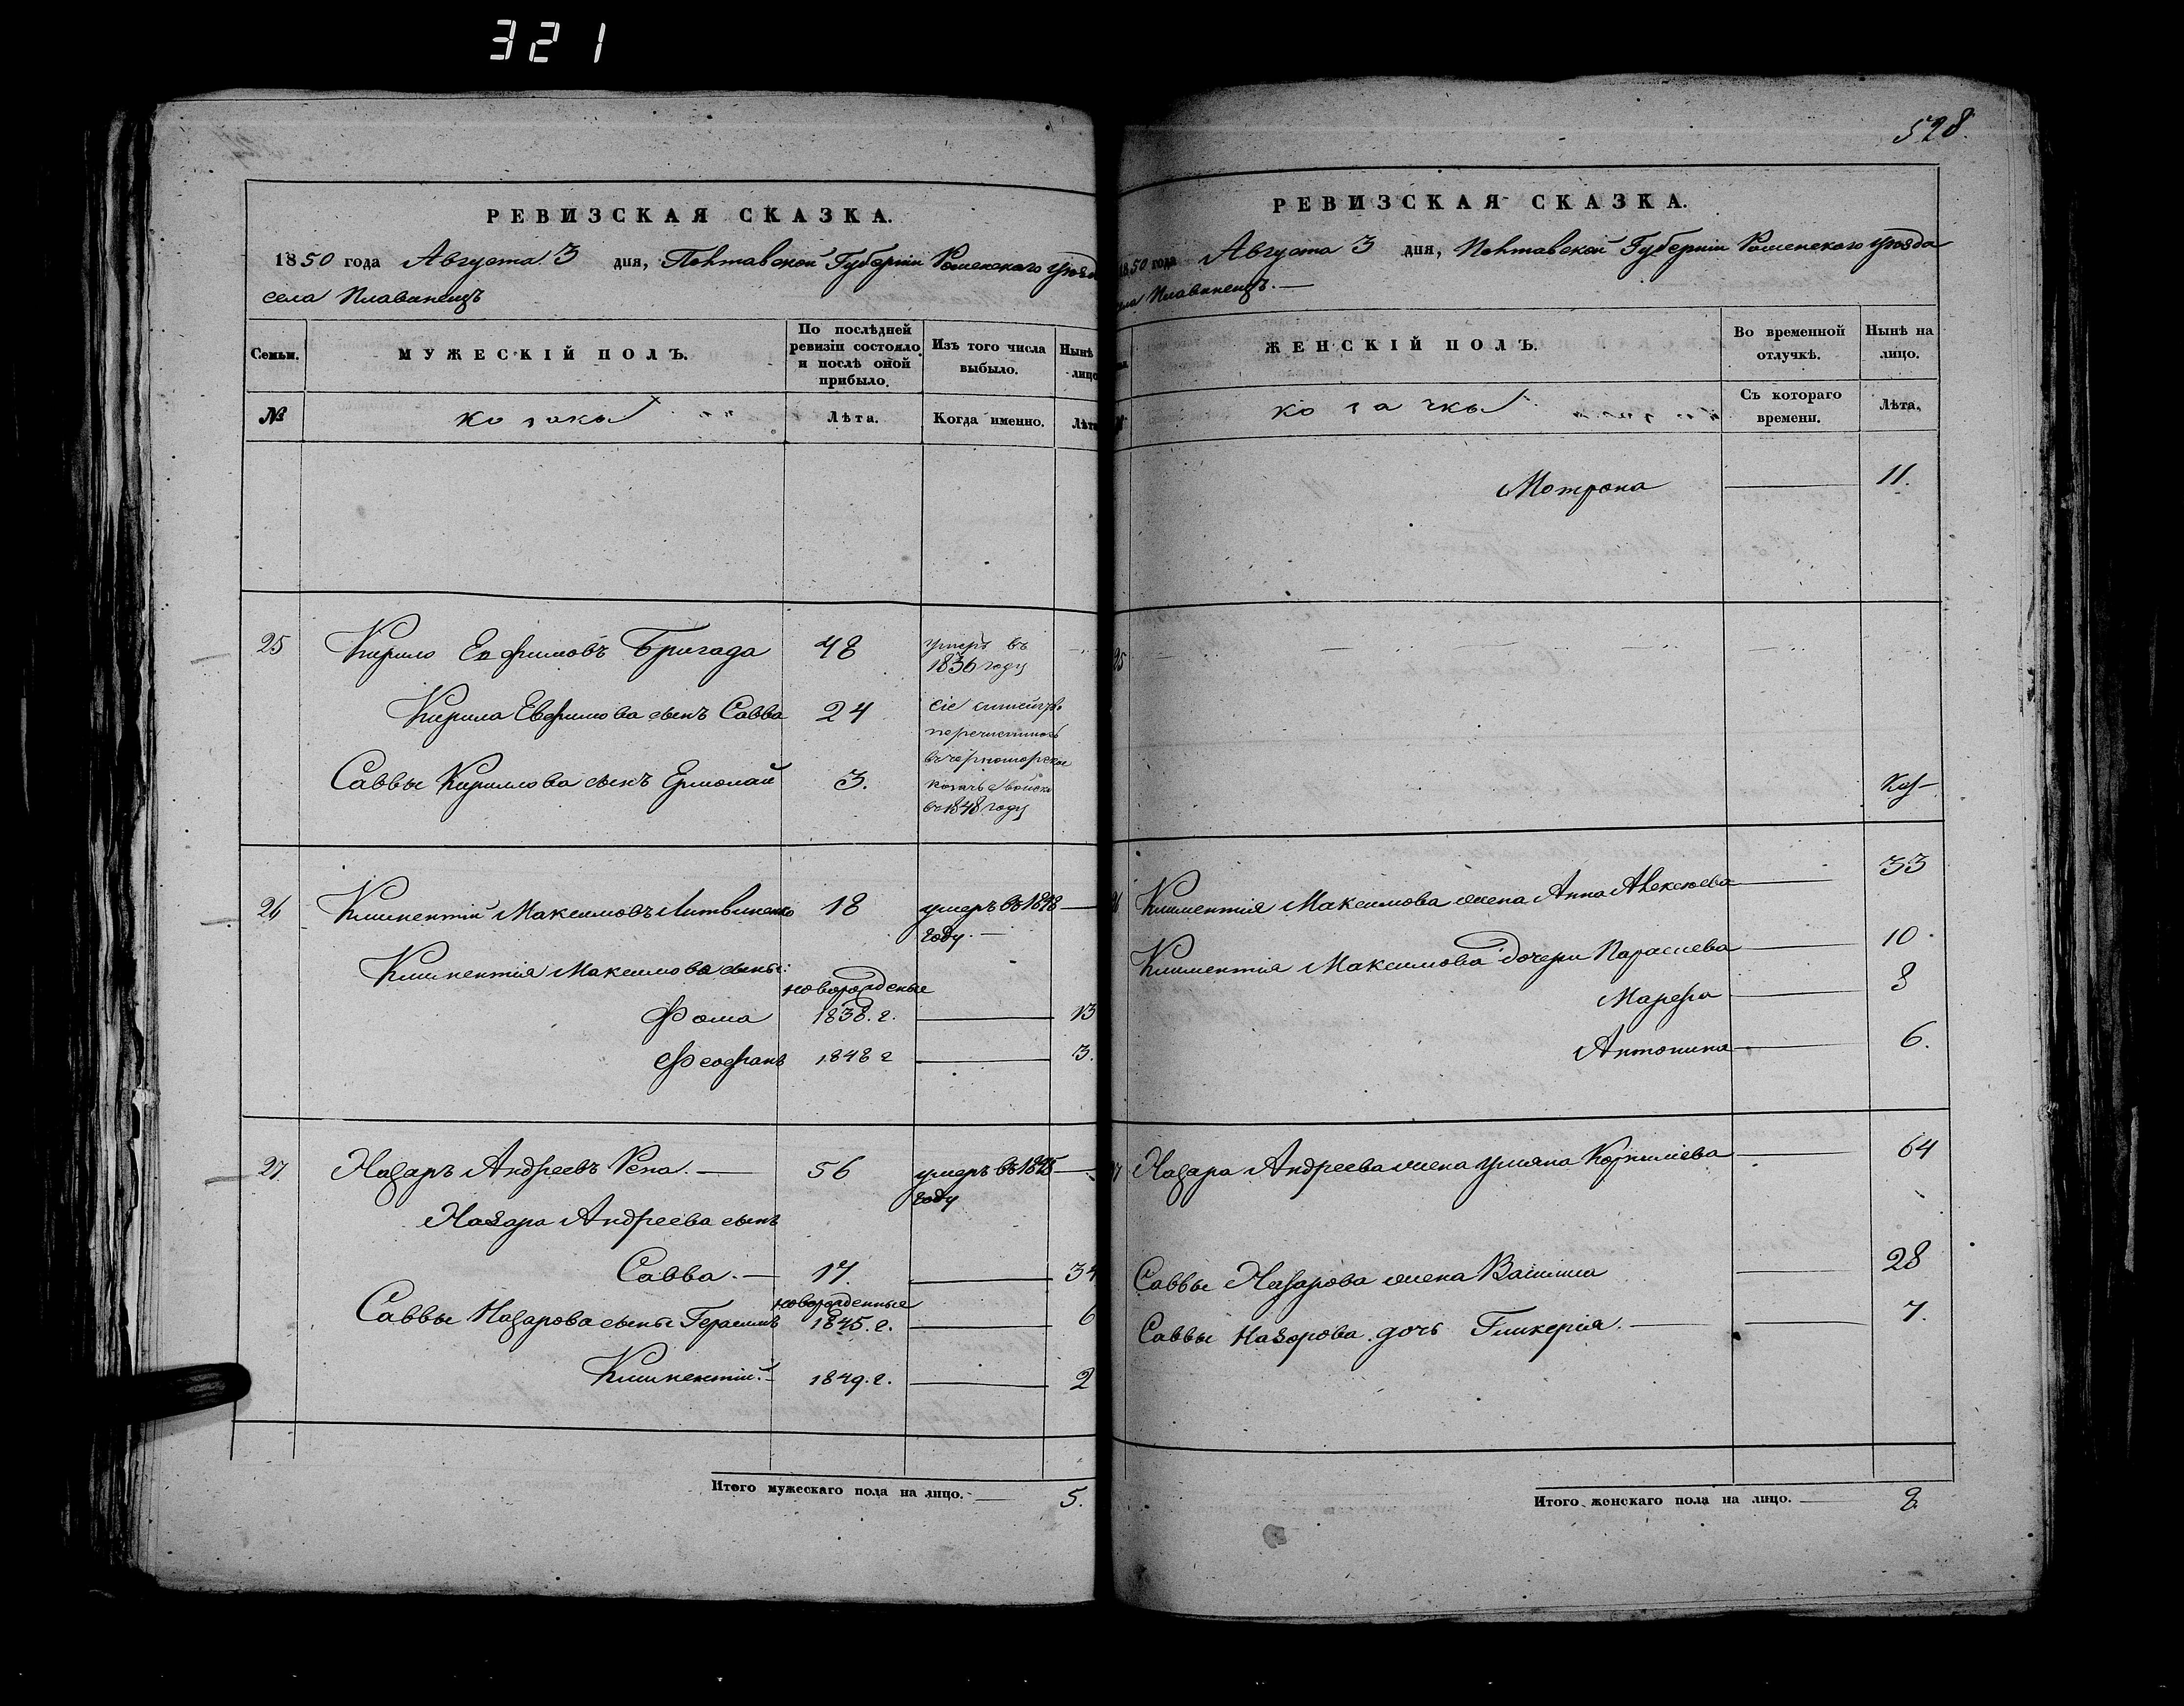 321
528.
РЕВИЗСКАЯ СКАЗКА.
1850 года Августа 3 дня, Полтавской Губернии Роменского уѣзд
села Плавинещъ
Семьи.
МУЖЕСКІЙ ПОЛЪ.
По послѣдней ревизіи состояло и послѣ оной прибыло.
Изъ того числа выбыло.
Нынѣ лицо
№
козаки
Лѣта.
Когда именно.
Лѣт
25 Кирило Евфимовъ Бригада 48 умеръ въ
1836 году
Кирила Евфимова сынъ Савва 24
Саввы Кириллова сынъ Ермолай 3.
сіе семейство
перечислилось
въ черноморское
козачье войско
въ 1848 году
26 Климентій Максимовъ Литвиненко 18 умеръ въ 1848 —
году. —
Климентія Максимова сыны:
новорожденые
Фома 1838. г. — 13
Феофанъ 1848 г — 3.
27 Назаръ Андреевъ Репа. — 56 умеръ въ 1845 —
году
Назара Андреева сынъ
Савва. — 17. — 34
новорожденные
Саввы Назарова сыны Герасимъ 1845. г. — 6
Климентій. — 1849. г. — 2
Итого мужескаго пола на лицо. — 5.
РЕВИЗСКАЯ СКАЗКА.
1850 года Августа 3 дня, Полтавской Губернии Роменского уѣзда
ела Плавинещъ. —
ЖЕНСКІЙ ПОЛЪ.
Во временной отлучкѣ.
Нынѣ на лицо.
козачки
Съ котораго времени.
Лѣта.
Мотрона — 11.
25
26 Климентія Максимова жена Анна Алексѣева — 33
Климентія Максимова дочери Парасцева — 10.
Марфа — 8
Антонина — 6.
27 Назара Андреева жена Уляна Корнилѣева — 64
Саввы Назарова жена Василиса — 28
Саввы Назарова дочь Гликерія. — 7.
Итого женскаго пола на лицо. — 8.